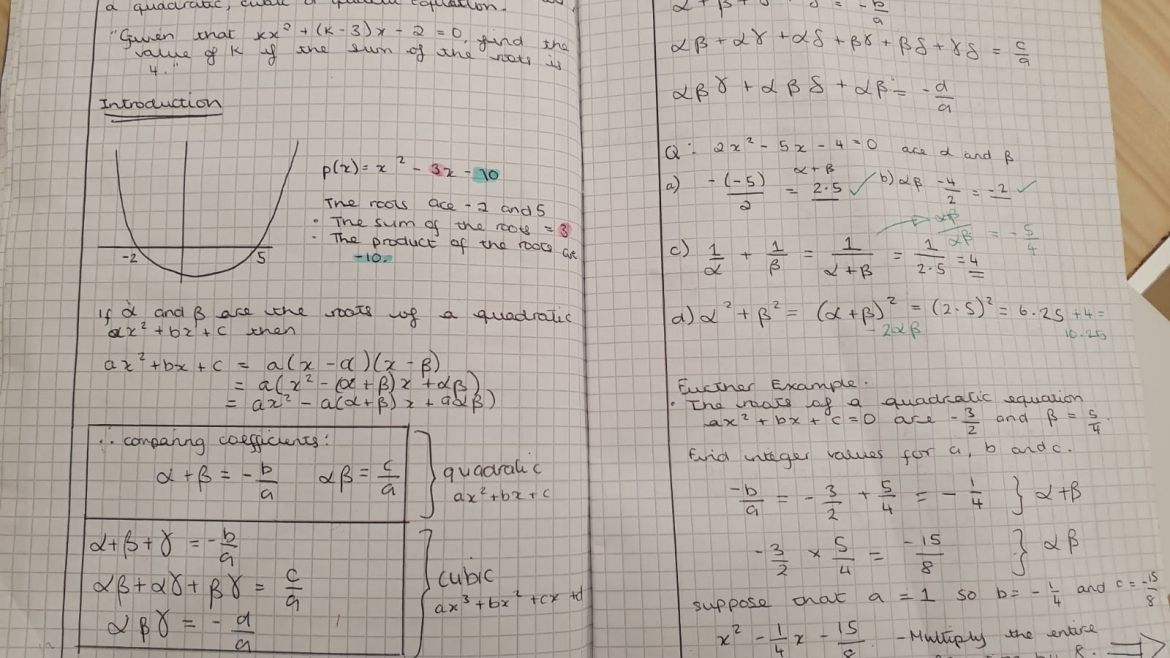 a quadratic, cubic or quartic equation.
"Given that kx² + (k-3)x - 2 = 0, find the
value of k if the sum of the roots is
4."
Introduction
p(x) = x² - 3x - 10
The roots are -2 and 5
· The sum of the roots = 3
· The product of the roots are
-10.
-2
5
if α and β are the roots of a quadratic
ax² + bx + c then
ax² + bx + c = a(x - α)(x - β)
= a(x² - (α + β)x + αβ)
= ax² - a(α+β)x + aαβ)
∴ comparing coefficients:
α + β = -b/a αβ = c/a
quadratic
ax² + bx + c
α+β+γ = -b/a
αβ + αγ + βγ = c/a
αβγ = -d/a
cubic
ax³ + bx² + cx + d
= -b/a
αβ + αγ + αδ + βγ + βδ + γδ = c/a
αβγ + αβδ + αβ = -d/a
Q: 2x² - 5x - 4 = 0 are α and β
α+β
a) -(-5)/2 = 2.5 ✓ b) αβ -4/2 = -2 ✓
c) 1/α + 1/β = 1/α+β = 1/2.5 = 4
αβ/αβ = -5/4
d) α² + β² = (α + β)² = (2.5)² = 6.25 + 4 =
- 2αβ 10.25
Further Example.
· The roots of a quadratic equation
ax² + bx + c = 0 are -3/2 and β = 5/4.
Find integer values for a, b and c.
-b/a = -3/2 + 5/4 = -1/4 } α+β
-3/2 × 5/4 = -15/8 } αβ
suppose that a = 1 so b = -1/4 and c = -15/8
x² - 1/4 x - 15/8 - Multiply the entire